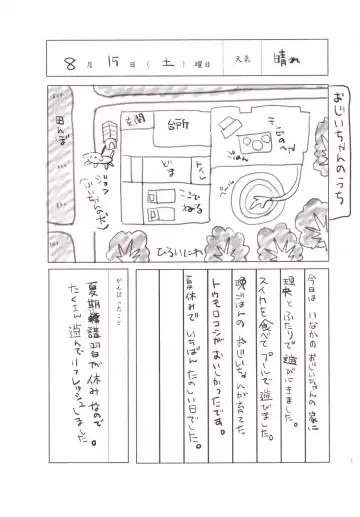 8月15日(土)曜日 天気 晴れ
おじいちゃんのうち
田んぼ
玄関
台所
テレビのへや
ごはん
どま
トイレ
ここでねる
プール
ジョン
(じいちゃんの犬)
ひろいにわ
今日は いなかの おじいちゃんの 家に
理央と ふたりで 遊びにきました。
スイカを食べて プールで 遊びました。
晩ごはんの おじいちゃんが 育てた
トウモロコシが おいしかったです。
夏休みで いちばん たのしい日でした。
がんばったこと
夏期講習が休みなので
たくさん 遊んでリフレッシュしました。